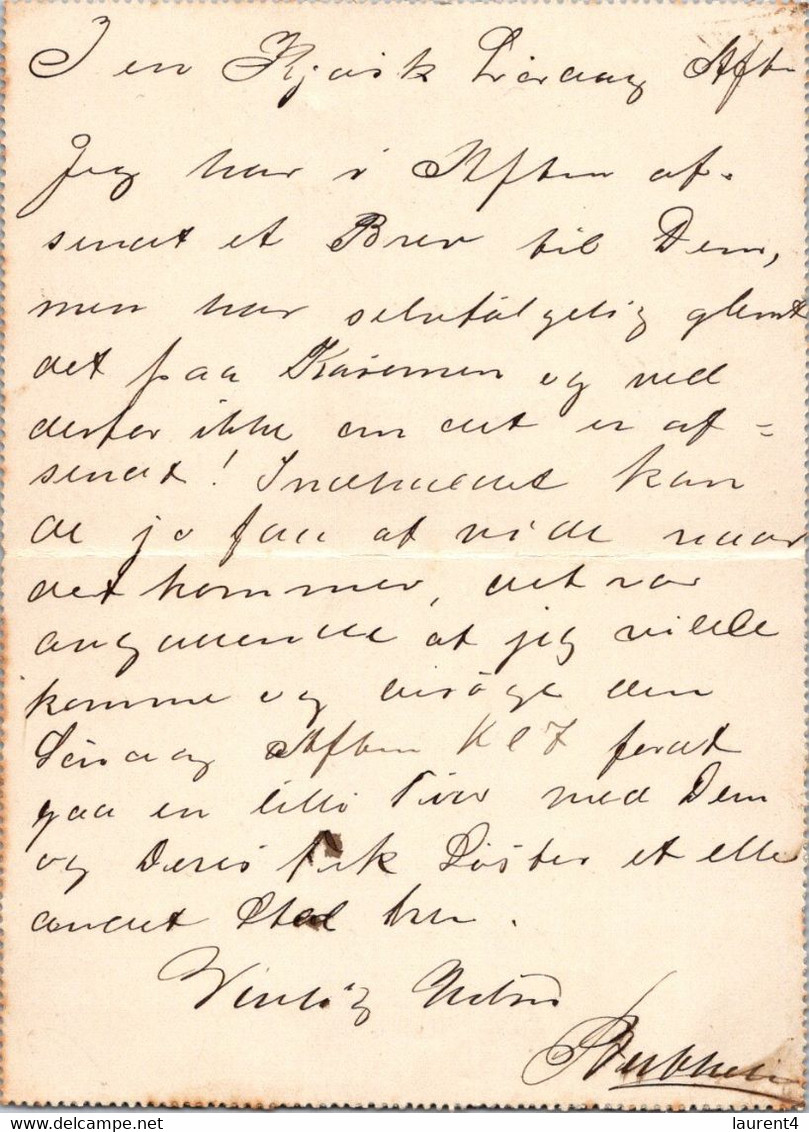 I en Kjosk Lördag Aften
Jeg har i Aften af-
sendt et Brev til Dem,
men har selvfölgelig glemt
det paa Kasernen og ved
derfor ikke om det er af=
sendt! Indholdet kan
de jo faa at vide naar
det kommer, det var
angaaende at jeg vilde
komme og besöge dem
Söndag Aften Kl 7 for at
gaa en lille Tur med Dem
og Deres Frk Söster et eller
andet Sted hen.
Venlig Hilsen
delcampe.net
laurent4